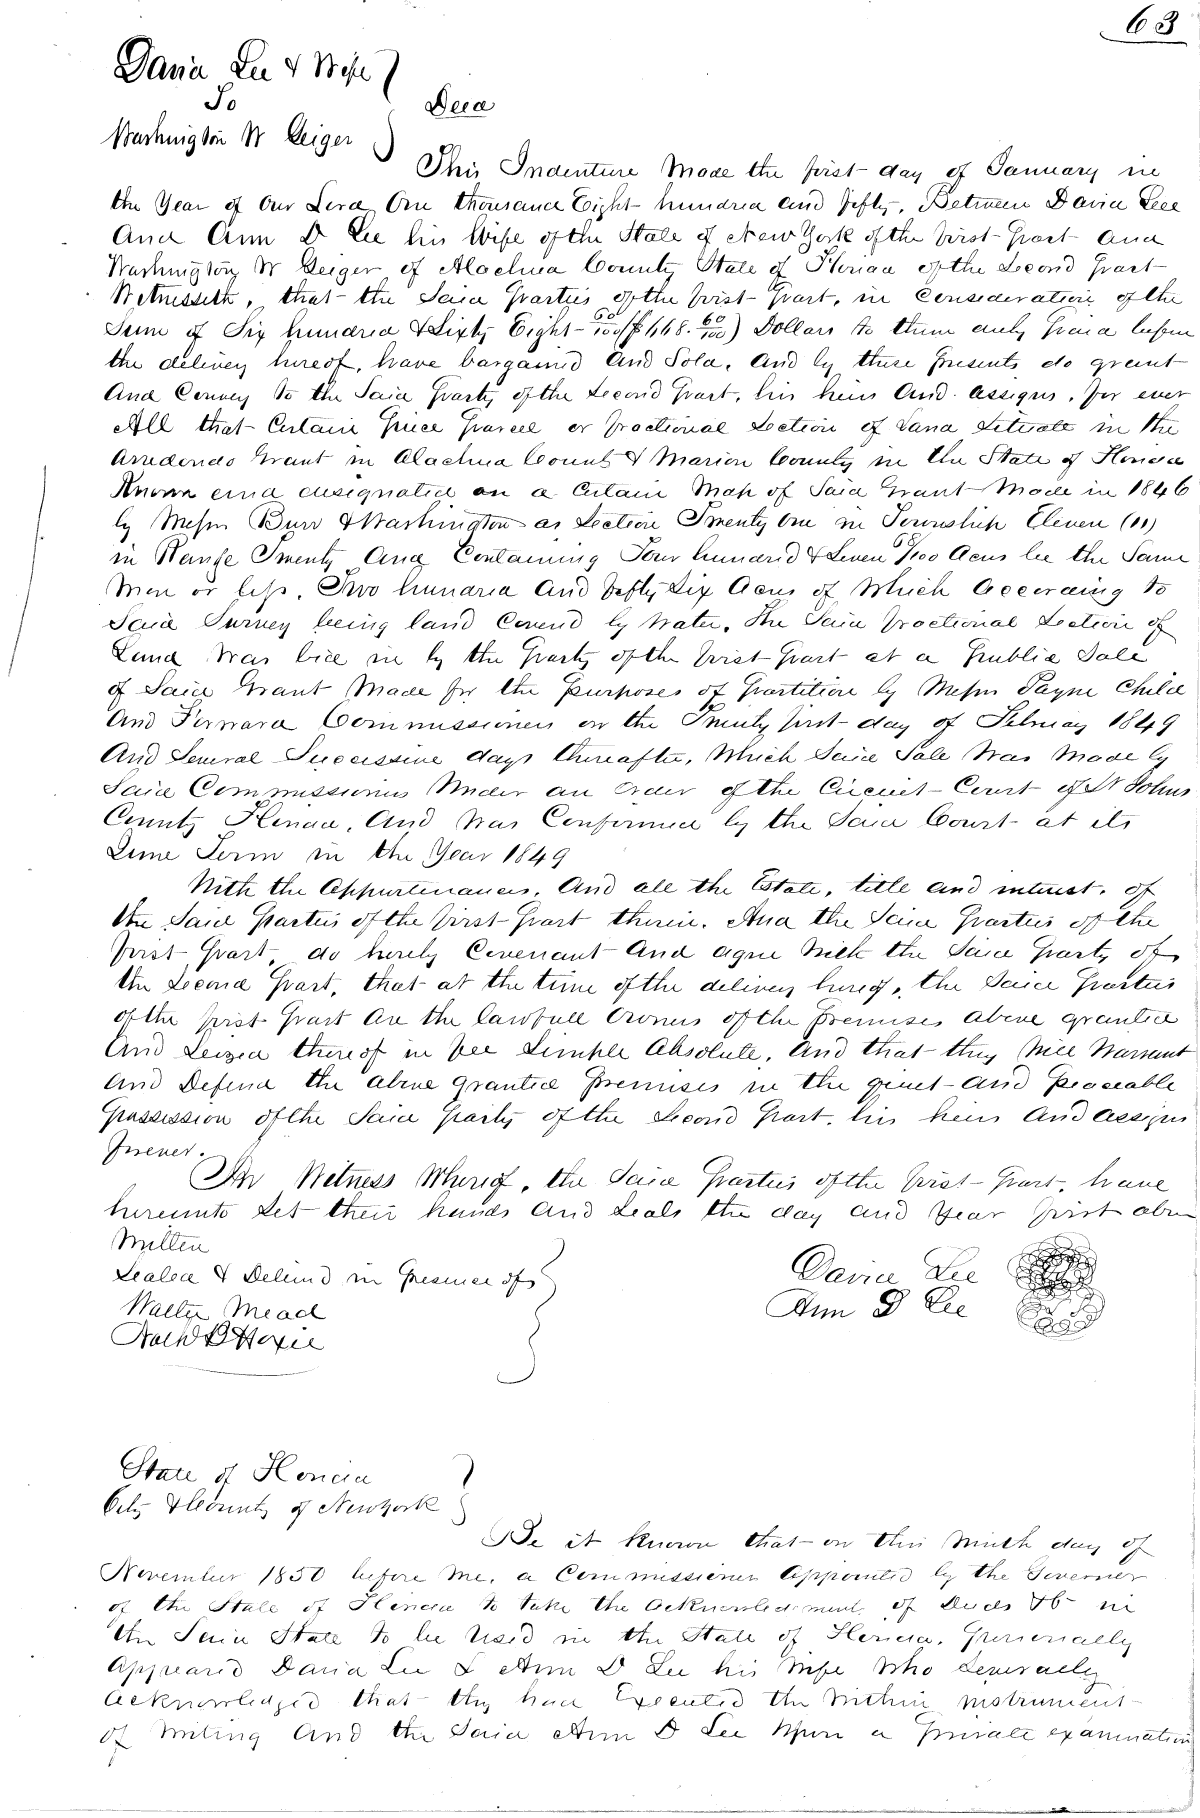 63
David Lee & Wife
To
Deed
Washington W Geiger
This Indenture Made the first day of January in
the Year of Our Lord One thousand Eight hundred and fifty, Between David Lee
And Ann D Lee his Wife of the State of New York of the first Part and
Washington W Geiger of Alachua County State of Florida of the Second Part
Witnesseth, that the Said Parties of the first Part, in Consideration of the
Sum of Six hundred & Sixty Eight 60/100 ($668. 60/100) Dollars to them duly Paid before
the delivery hereof, have bargained and Sold, And by these Presents do grant
And Convey to the Said Party of the Second Part, his heirs And assigns, for ever
All that Certain Piece Parcel or fractional Section of Land Situate in the
Arredondo Grant in Alachua County & Marion County in the State of Florida
Known and designated on a Certain Map of Said Grant Made in 1846
by Messrs Burr & Washington as Section Twenty One in Township Eleven (11)
in Range Twenty And Containing Four hundred & Seven /100 Acres be the Same
More or less, Two hundred and fifty Six Acres of Which According to
Said Survey being land Covered by Water, The Said fractional Section of
Land Was bid in by the Party of the first Part at a Public Sale
of Said Grant Made for the purposes of Partition by Messrs Payne Child
And Forward Commissioners on the Twenty first day of February 1849
And Several Successive days thereafter, Which Said Sale Was Made by
Said Commissioners Under an order of the Circuit Court of St Johns
County Florida, And Was Confirmed by the Said Court at its
June Term in the Year 1849
With the Appurtenances, And all the Estate, title and interest, of
the Said Parties of the first Part therein. And the Said Parties of the
first Part, do hereby Covenant And agree With the Said Party of
the Second Part, that at the time of the delivery hereof, the Said Parties
of the first Part Are the lawfull Owners of the Premises above granted
And Seized thereof in fee Simple Absolute, And that they Will Warrant
And Defend the above granted Premises in the quiet and Peaceable
Possession of the Said Party of the Second Part, his heirs And assigns
forever.
In Witness Whereof, the Said Parties of the first Part, have
hereunto Set their hands and Seals the day and Year first above
Written
Sealed & Deliverd in Presence of
David Lee
Walter Mead
Ann D Lee
Nath B Hoxie
State of Florida
City & County of New York
Be it Known that on this Ninth day of
November 1850 before me, a Commissioner Appointed by the Governor
of the State of Florida to take the Acknowledgment of Deeds &c in
the Said State to be Used in the State of Florida, Personally
Appeared David Lee & Ann D Lee his Wife Who Severally
Acknowledged that they had Executed the Within instrument
of Writing And the Said Ann D Lee Upon a Private examination